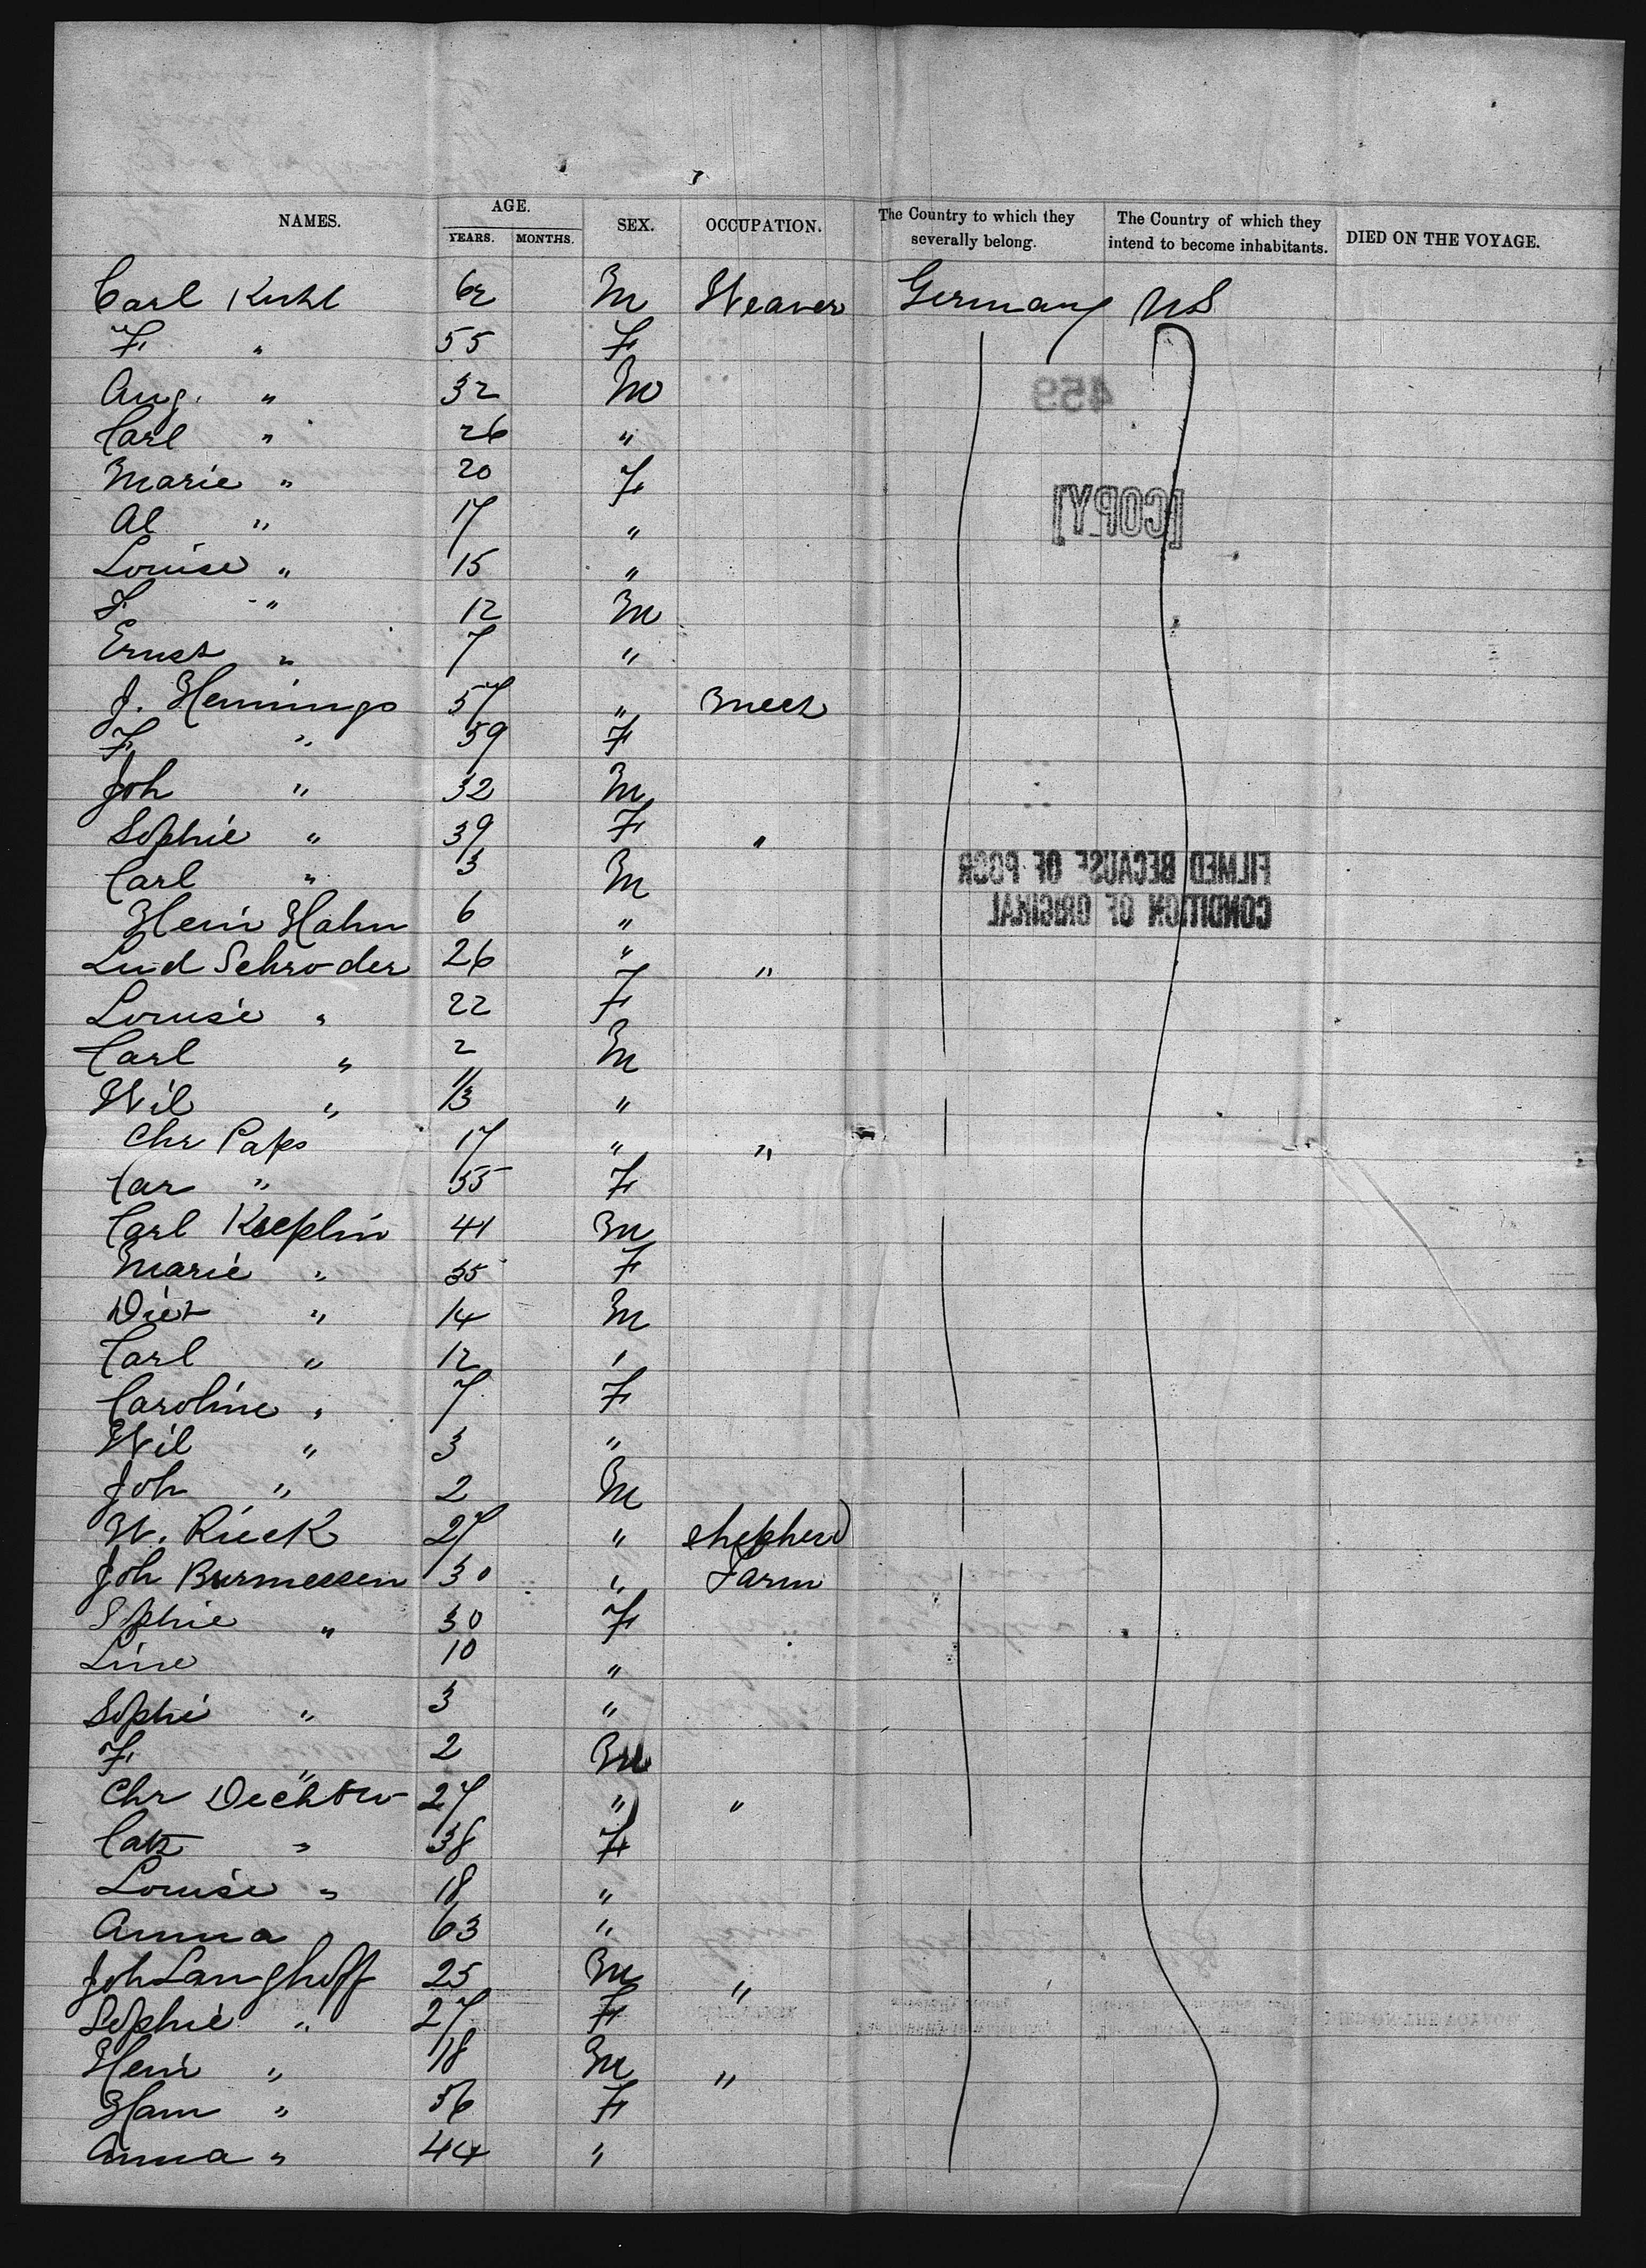 NAMES. AGE. SEX. OCCUPATION. The Country to which they severally belong. The Country of which they intend to become inhabitants. DIED ON THE VOYAGE.
YEARS. MONTHS.
Carl Kuhl 62 M Weaver Germany US
F. " 55 F
Aug. " 32 M
Carl " 26 "
Marie " 20 F
Al " 17 "
Louise " 15 "
F. " 12 M
Ernst " 7 "
J. Hennings 57 " Mech
F. " 59 F
Joh " 32 M
Sophie " 39 F "
Carl " 3 M
Hein Hahn 6 "
Lud Schroder 26 " "
Louise " 22 F
Carl " 2 M
Wil " 1/3 "
Chr Paps 17 " "
Car " 55 F
Carl Koeplin 41 M
Marie " 35 F
Diet " 14 M
Carl " 12 "
Caroline " 7 F
Wil " 3 "
Joh " 2 M
W. Rieck 27 " shepherd
Joh Burmessen 30 " Farm
Sophie " 30 F
Line 10 "
Sophi " 3 "
F. " 2 M
Chr Dechow 27 " "
Cath " 38 F
Louise " 18 "
Anna " 63 "
Joh Langhoff 25 M "
Sophie " 27 F
Hein " 18 M "
Hann " 56 F
Anna " 44 "
459
[COPY]
FILMED BECAUSE OF POOR
CONDITION OF ORIGINAL